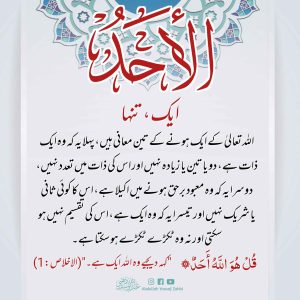 الأَحَدُ
ایک ، تنہا
اللہ تعالیٰ کے ایک ہونے کے تین معانی ہیں، پہلا یہ کہ وہ ایک
ذات ہے، دو یا تین یا زیادہ نہیں اور اس کی ذات میں تعدد نہیں،
دوسرا یہ کہ وہ معبود برحق ہونے میں اکیلا ہے، اس کا کوئی ثانی
یا شریک نہیں اور تیسرا یہ کہ وہ ایک ہے، اس کی تقسیم نہیں ہو
سکتی اور نہ وہ ٹکڑے ٹکڑے ہو سکتا ہے۔
قُلْ هُوَ اللَّهُ أَحَدٌ "کہہ دیجیے وہ اللہ ایک ہے۔" (الاخلاص: 1)